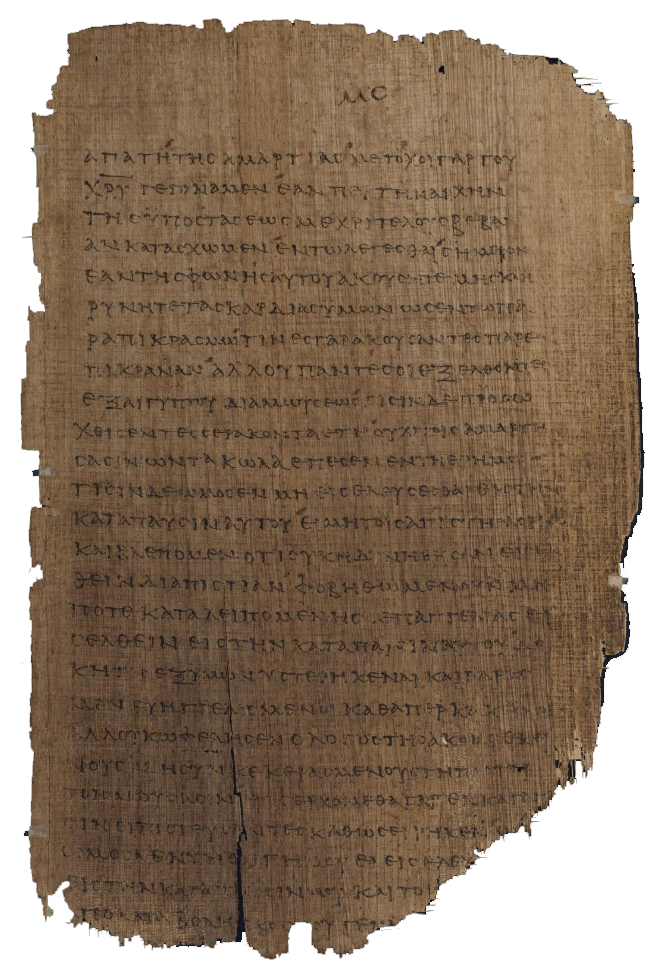 μϲ
απατη τηϲ αμαρτιαϲ μετοχοι γαρ του
χρυ γεγοναμεν εαν την αρχην
τηϲ υποϲταϲεωϲ μεχρι τελουϲ βεβαι
αν καταϲχωμεν εν τω λεγεϲθαι ϲημερον
εαν τηϲ φωνηϲ αυτου ακουϲητε μη ϲκλη
ρυνητε ταϲ καρδιαϲ υμων ωϲ εν τω πα
ραπικραϲμω τινεϲ γαρ ακουϲαντεϲ παρε
πικραναν αλλ ου παντεϲ οι εξελθοντεϲ
εξ αιγυπτου δια μωυϲεωϲ τιϲιν δε προϲω
χθιϲεν τεϲϲερακοντα ετη ουχι τοιϲ αμαρτη
ϲαϲιν ων τα κωλα επεϲεν εν τη ερημω
τιϲιν δε ωμοϲεν μη ειϲελευϲεϲθαι ειϲ την
καταπαυϲιν αυτου ει μη τοιϲ απιϲτηϲαϲι
και βλεπομεν οτι ουκ ηδυνηθηϲαν ειϲελ
θειν δια απιϲτιαν φοβηθωμεν ουν μη
ποτε καταλειπομενηϲ επαγγελιαϲ ειϲ
ελθειν ειϲ την καταπαυϲιν αυτου δο
κη τιϲ εξ υμων υϲτερηκεναι και γαρ
μεν ευηγγελιϲμενοι καθαπερ κακεινοι
αλλ ουκ ωφεληϲεν ο λογοϲ τηϲ ακοηϲ εκει
νουϲ μη ϲυνκεκεραϲμενουϲ τη πιϲτει
τοιϲ ακουϲαϲιν ειϲερχομεθα γαρ
οι πιϲτευϲαντεϲ καθωϲ ειρηκεν
ωμοϲα εν τη οργη μου ει ειϲελευ
ειϲ την καταπαυϲιν μου και το
απο καταβολη κοϲμου